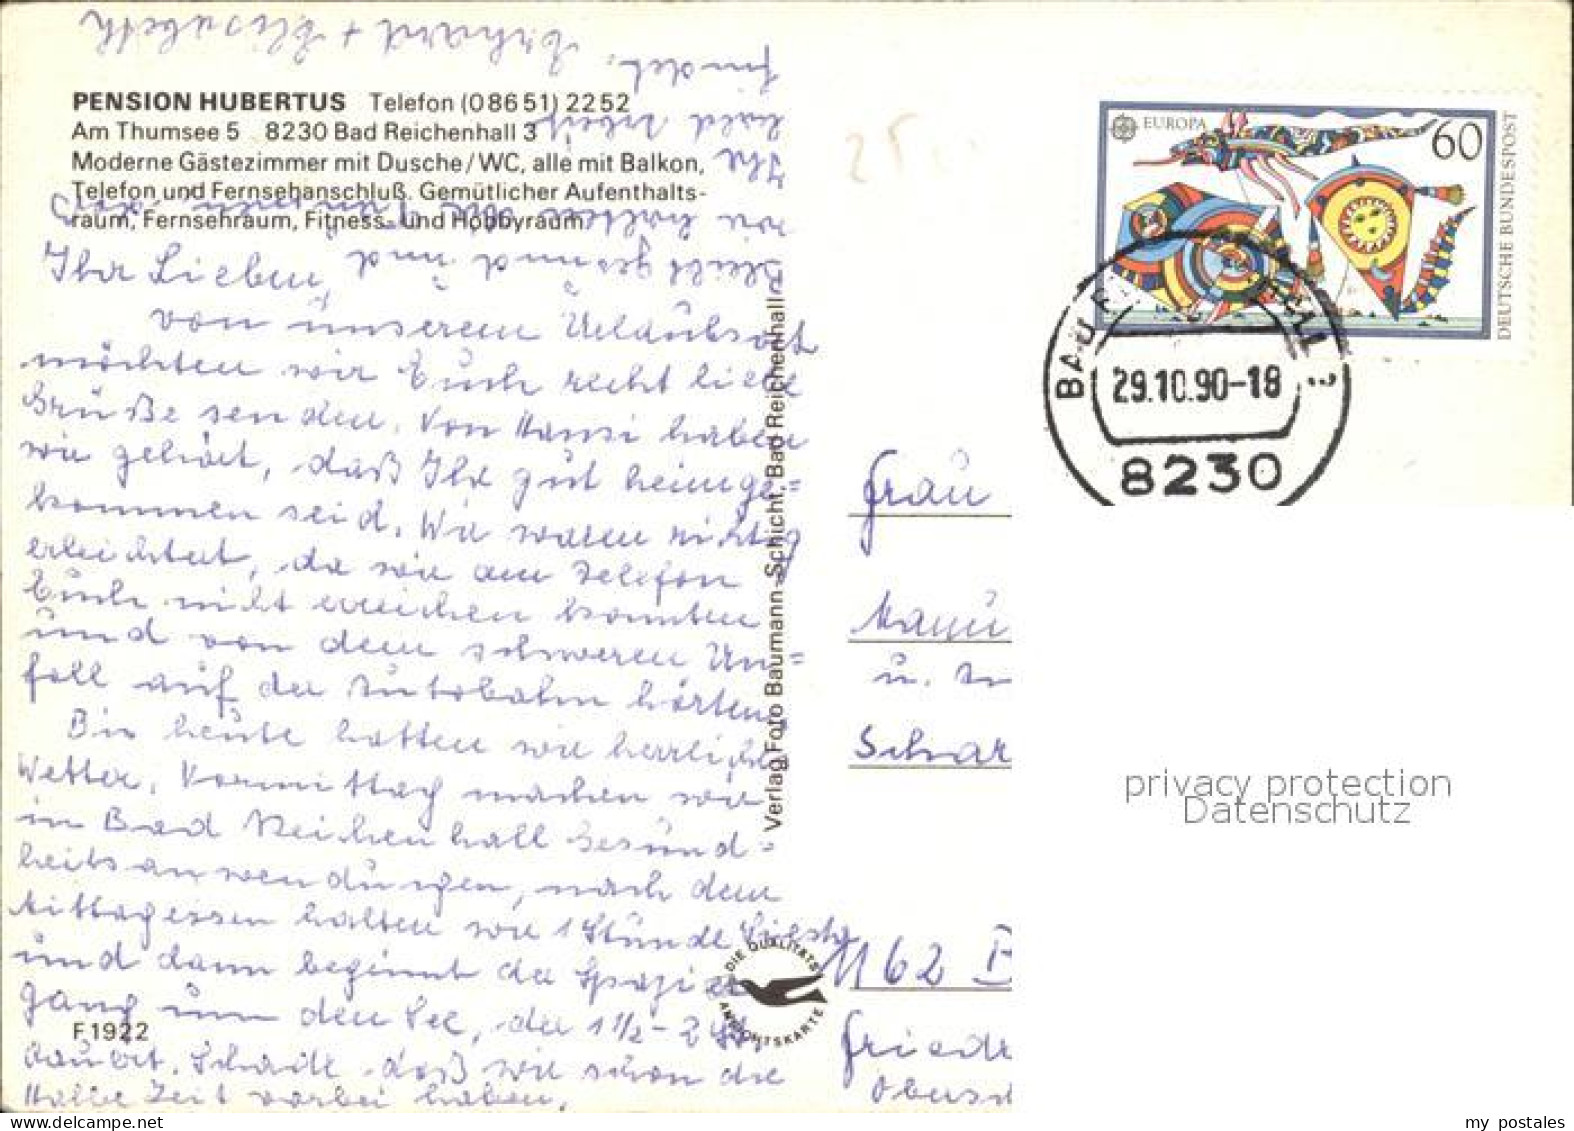 PENSION HUBERTUS Telefon (08651) 2252
Am Thumsee 5 8230 Bad Reichenhall 3
Moderne Gästezimmer mit Dusche/WC, alle mit Balkon,
Telefon und Fernsehanschluß. Gemütlicher Aufenthalts-
raum, Fernsehraum, Fitness- und Hobbyraum.
Ihr Lieben,
von unserem Urlaubsort
möchten wir Euch recht liebe
Grüße senden. Von Hansi haben
wir gehört, daß Ihr gut heimge=
kommen seid. Wir waren richtig
erleichtert, da wir am Telefon
Euch nicht erreichen konnten
und von dem schweren Un=
fall auf der Autobahn hörten.
Bis heute hatten wir herrliches
Wetter. Vormittag machen wir
in Bad Reichenhall Gesund=
heitsanwendungen, nach dem
Mittagessen halten wir 1 Stunde
und dann beginnt der Spazier
gang um den See, der 1 1/2 - 2 Std.
dauert. Schade, daß wir schon die
Halbe Zeit vorbei haben.
Bleibt gesund und
wir hoffen, daß
Ihr
bald Arbeit
findet.
Erhard + Elisabeth
F 1922
Verlag Foto Baumann-Schicht, Bad Reichenhall
DIE QUALITÄTS
ANSICHTSKARTE
EUROPA
60
DEUTSCHE BUNDESPOST
29.10.90-18
8230
Frau
u.
Schar
1162 B
Friedr
privacy protection
Datenschutz
my postales